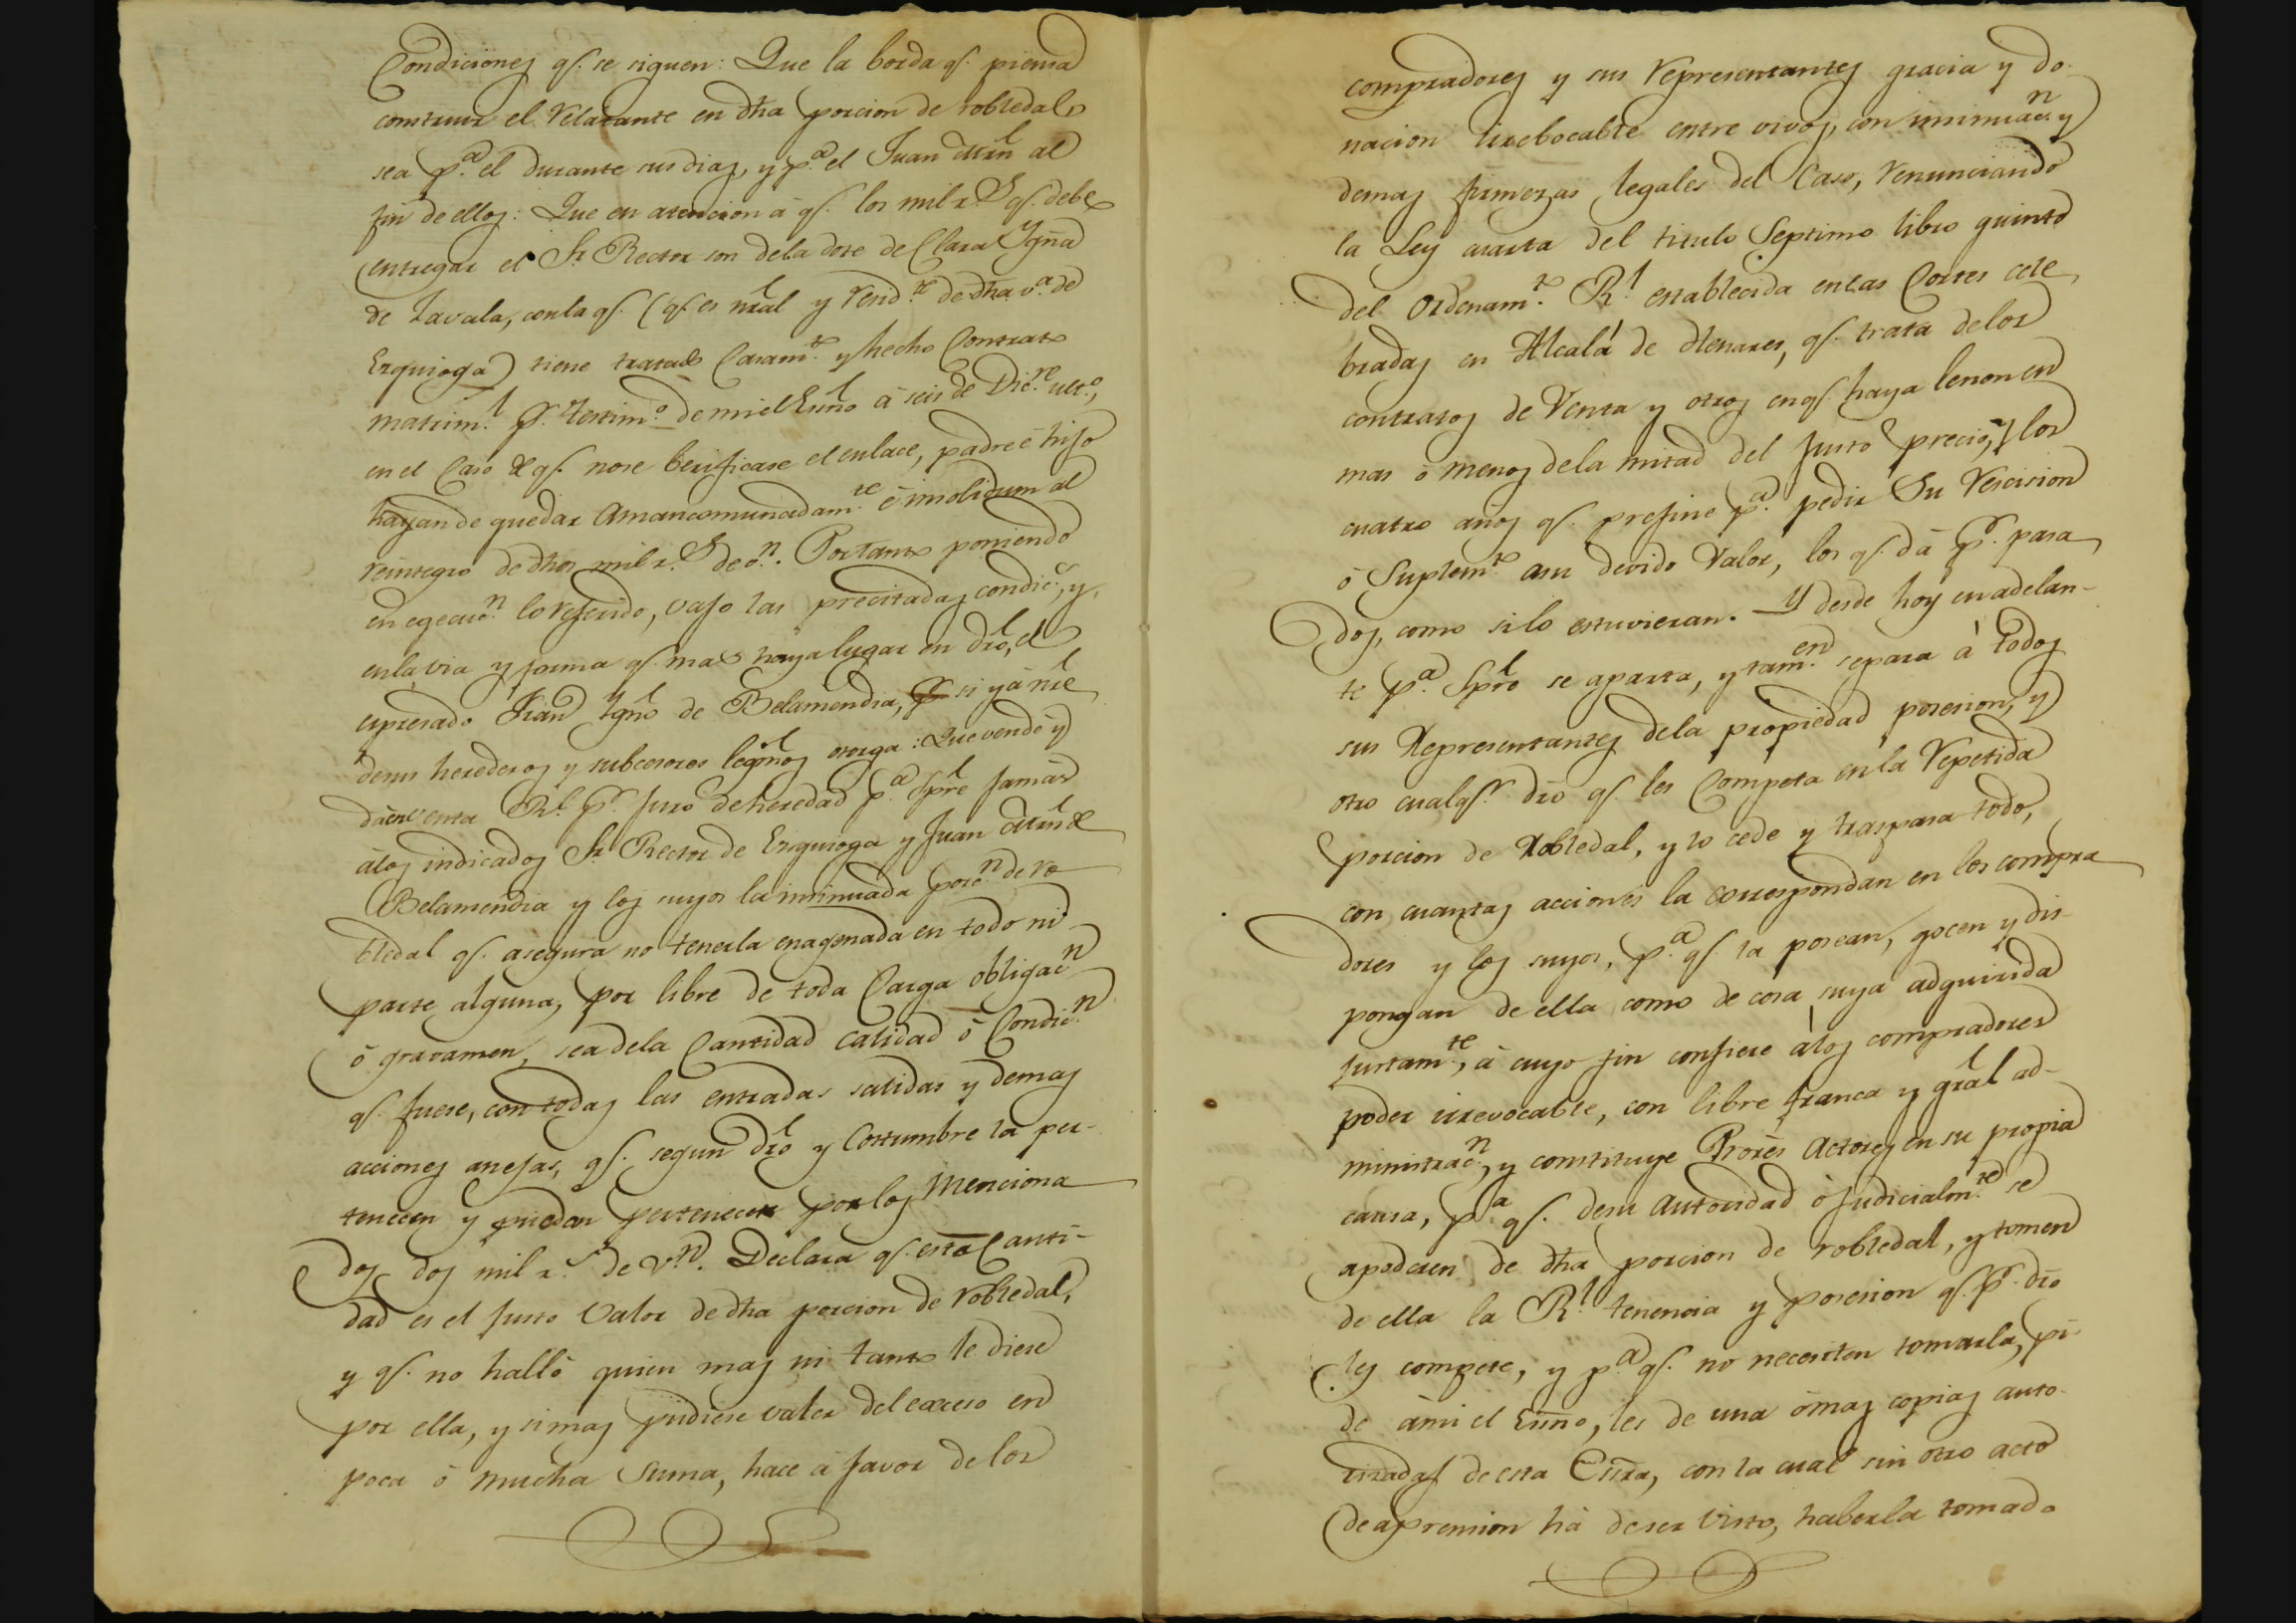 Condiciones qᵉ. se siguen: Que la borda qᵉ. piensa
construir el Relatante en dħa porcion de robledal
sea pᵃ. el durante sus dias, y pᵃ. el Juan Mrñ al
fin de ellos: Que en atencion â qᵉ. los mil rˢ. qᵉ. debe
entregar el Sʳ Rector son dela dote de Clara Ygña
de Zavala, con la qᵉ. (qᵉ. es nral y residᵗᵉ de dħa vᵃ. de
Ezquioga) tiene tratado Casamᵗᵒ. y hecho Contrato
matrimˡ. pʳ. testimᵒ. de mi el Esño â seis de Dicʳᵉ ultᵒ.,
en el Caso de qᵉ. nose berificase el enlace, padre ê hijo
hayan de quedar Amancomunadamᵗᵉ ê insolidum al
reintegro de dħos mil rˢ. de vⁿ. Portanto poniendo
en egecucⁿ. lo referido, vajo las precitadas condicˢ, y
en la via y forma qᵉ. mas haya lugar en dro, el
expresado Juan Ygnº de Belamendia, pʳ si y â nre
desus herederos y subcesores legmos otorga: Que vende y
dâ en venta Rˡ. pʳ. juro de heredad pᵃ. Spre jamâs
âlos indicados Sʳ Rector de Ezquioga y Juan Mrñ de
Belamendia y los suyos la insinuada porcⁿ. de ro
bledal qᵉ. asegura no tenerla enagenada en todo ni
parte alguna, por libre de toda Carga obligacⁿ
ô gravamen, sea dela Cantidad Calidad ô Condicⁿ
qᵉ. fuere, con todas las entradas salidas y demas
acciones anejas, qᵉ. segun dro y Costumbre la per-
tenecen y puedan pertenecer por los menciona
dos dos mil rˢ. de vⁿ. Declara qᵉ. esta Canti-
dad es el justo Valor de dħa porcion de robledal,
y qᵉ. no hallô quien mas ni tanto le diese
por ella, y si mas pudiese valer del exceso en
poca ô mucha Suma, hace â favor delos
compradores y sus representantes gracia y do-
nacion irrebocable entre vivos, con insinuacⁿ. y
demas firmezas legales del Caso, renunciando
la Ley cuarta del titulo Septimo libro quinto
del Ordenamᵗᵒ. Rˡ. establecida en las Cortes cele
bradas en Alcalá de Henares, qᵉ. trata delos
contratos de Venta y otros en qᵉ. haya lesion en
mas ô menos dela mitad del justo precio, y los
cuatro años qᵉ. prefine pᵃ. pedir Su rescision
ô Suplemᵗᵒ asu devido Valor, los qᵉ. dâ pʳ. pasa
dos, como silo estuvieran. Y desde hoy en adelan-
te pᵃ. Spre se aparta, y tamᵉⁿ. separa â todos
sus Representantes dela propiedad posesion, y
otro cualqʳ. dro qᵉ. les Competa en la repetida
porcion de Robledal, y lo cede y traspasa todo,
con cuantas acciones la correspondan en los compra
dores y los suyos, pᵃ. qᵉ. la posean, gocen y dis-
pongan de ella como de cosa suya adquirida
justamᵗᵉ, â cuyo fin confiere âlos compradores
poder irrevocable, con libre franca y gral ad-
ministracⁿ, y constituye Prores Actores en su propia
causa, pᵃ qᵉ. desu autoridad ô judicialmᵗᵉ se
apoderen de dħa porcion de robledal, y tomen
de ella la Rˡ. tenencia y posesion qᵉ. pʳ. dro
les compete, y pᵃ qᵉ. no necesiten tomarla, pi-
de âmi el Esño, les de una ômas copias auto-
rizadas de esta Essra, con la cual sin otro acto
de aprension hâ deser Visto, haberla tomado